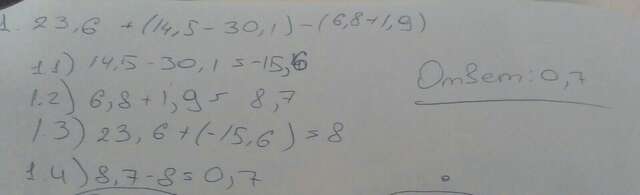 1. 23,6 + (14,5 - 30,1) - (6,8 + 1,9)
1.1) 14,5 - 30,1 = -15,6
1.2) 6,8 + 1,9 = 8,7
1.3) 23,6 + (-15,6) = 8
1.4) 8,7 - 8 = 0,7
Ответ: 0,7